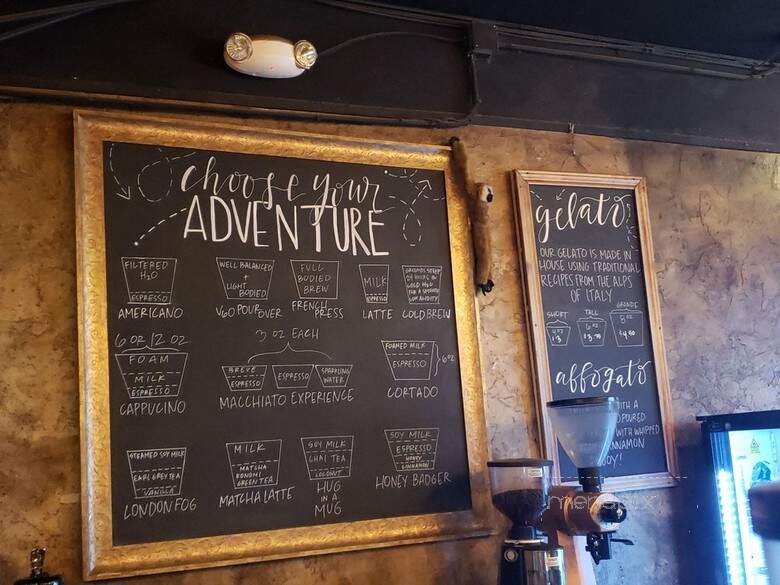 choose your
ADVENTURE
FILTERED
H2O
ESPRESSO
AMERICANO
WELL BALANCED
LIGHT
BODIED
V60 POUR OVER
FULL
BODIED
BREW
FRENCH
PRESS
MILK
ESPRESSO
LATTE
COLD H2O
FOR A SMOOTH
LOW ACIDITY
COLD BREW
6 OZ / 12 OZ
FOAM
MILK
ESPRESSO
CAPPUCINO
3 OZ EACH
BREVE
ESPRESSO
ESPRESSO
SPARKLING
WATER
MACCHIATO EXPERIENCE
FOAMED MILK
ESPRESSO
6 OZ
CORTADO
STEAMED SOY MILK
EARL GREY TEA
VANILLA
LONDON FOG
MILK
MATCHA
GREEN TEA
MATCHA LATTE
SOY MILK
CHAI TEA
COCONUT
HUG
IN A
MUG
SOY MILK
ESPRESSO
HONEY
CINNAMON
HONEY BADGER
gelato
OUR GELATO IS MADE IN
HOUSE USING TRADITIONAL
RECIPES FROM THE ALPS
OF ITALY
SHORT
4 OZ
$3
TALL
6 OZ
GRANDE
8 OZ
affogato
WITH A
POURED
WITH WHIPPED
CINNAMON
menupix